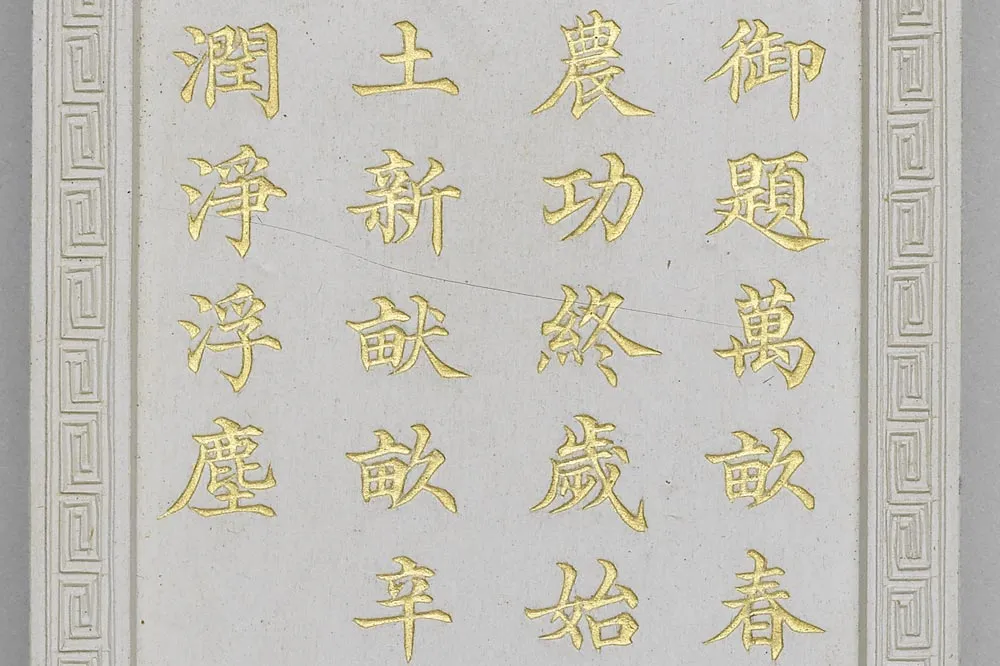 御題萬畝春
農功終歲始
土新畎畝辛
潤淨浮塵